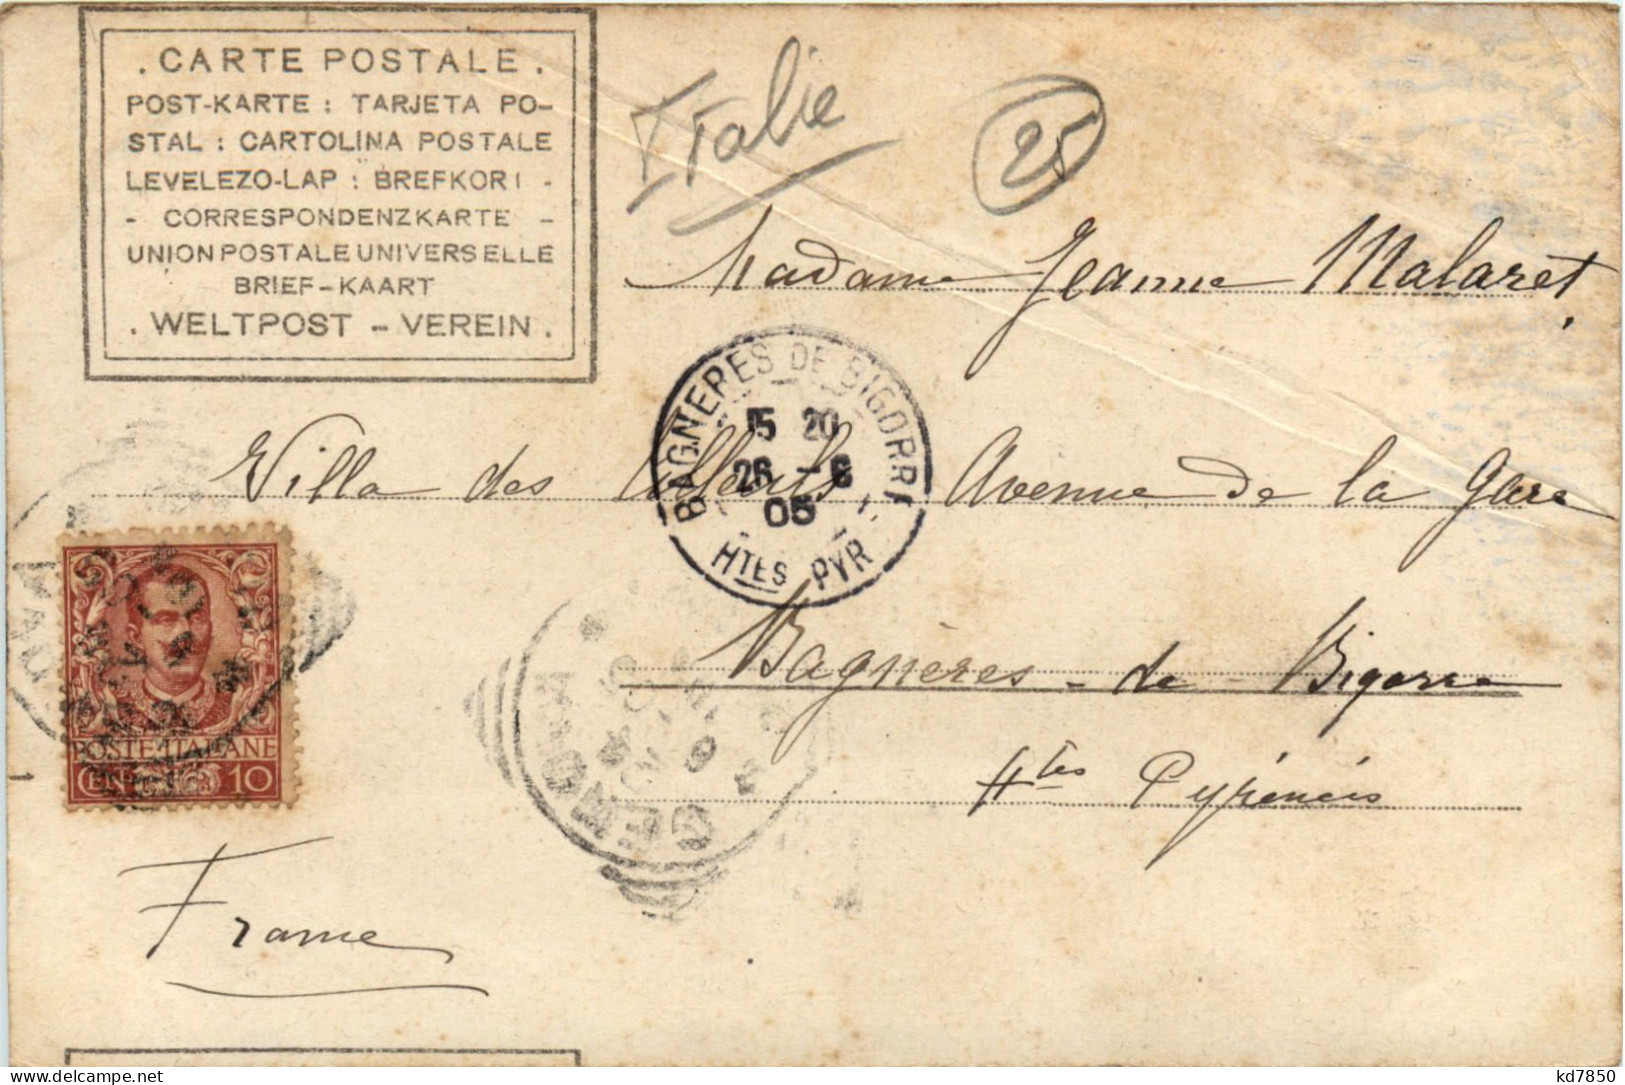 . CARTE POSTALE .
POST-KARTE : TARJETA PO-
STAL : CARTOLINA POSTALE
LEVELEZO-LAP : BREFKORT -
- CORRESPONDENZKARTE -
UNION POSTALE UNIVERSELLE
BRIEF-KAART
. WELTPOST - VEREIN .
Italie
25
Madame Jeanne Malaret,
BAGNERES DE BIGORRE
15 20
26 - 6
05
HTES PYR
Villa des Avenue de la Gare
Bagnères - de - Bigorre
Htes Pyrénéés
POSTE ITALIANE
CENT 10
GENOVA
France
kd7850